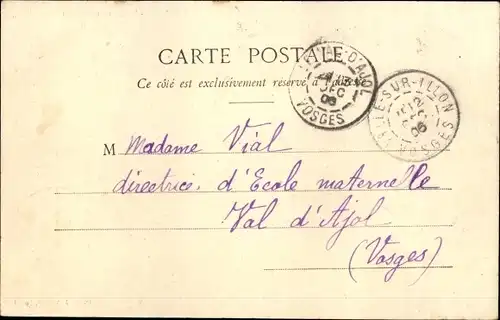 CARTE POSTALE
Ce côté est exclusivement réservé à l'adresse
D'AJOL
DEC
VOSGES
VILLE-SUR-ILLON
12
VOSGES
M Madame Vial
directrice d'Ecole maternelle
Val d'Ajol
(Vosges)